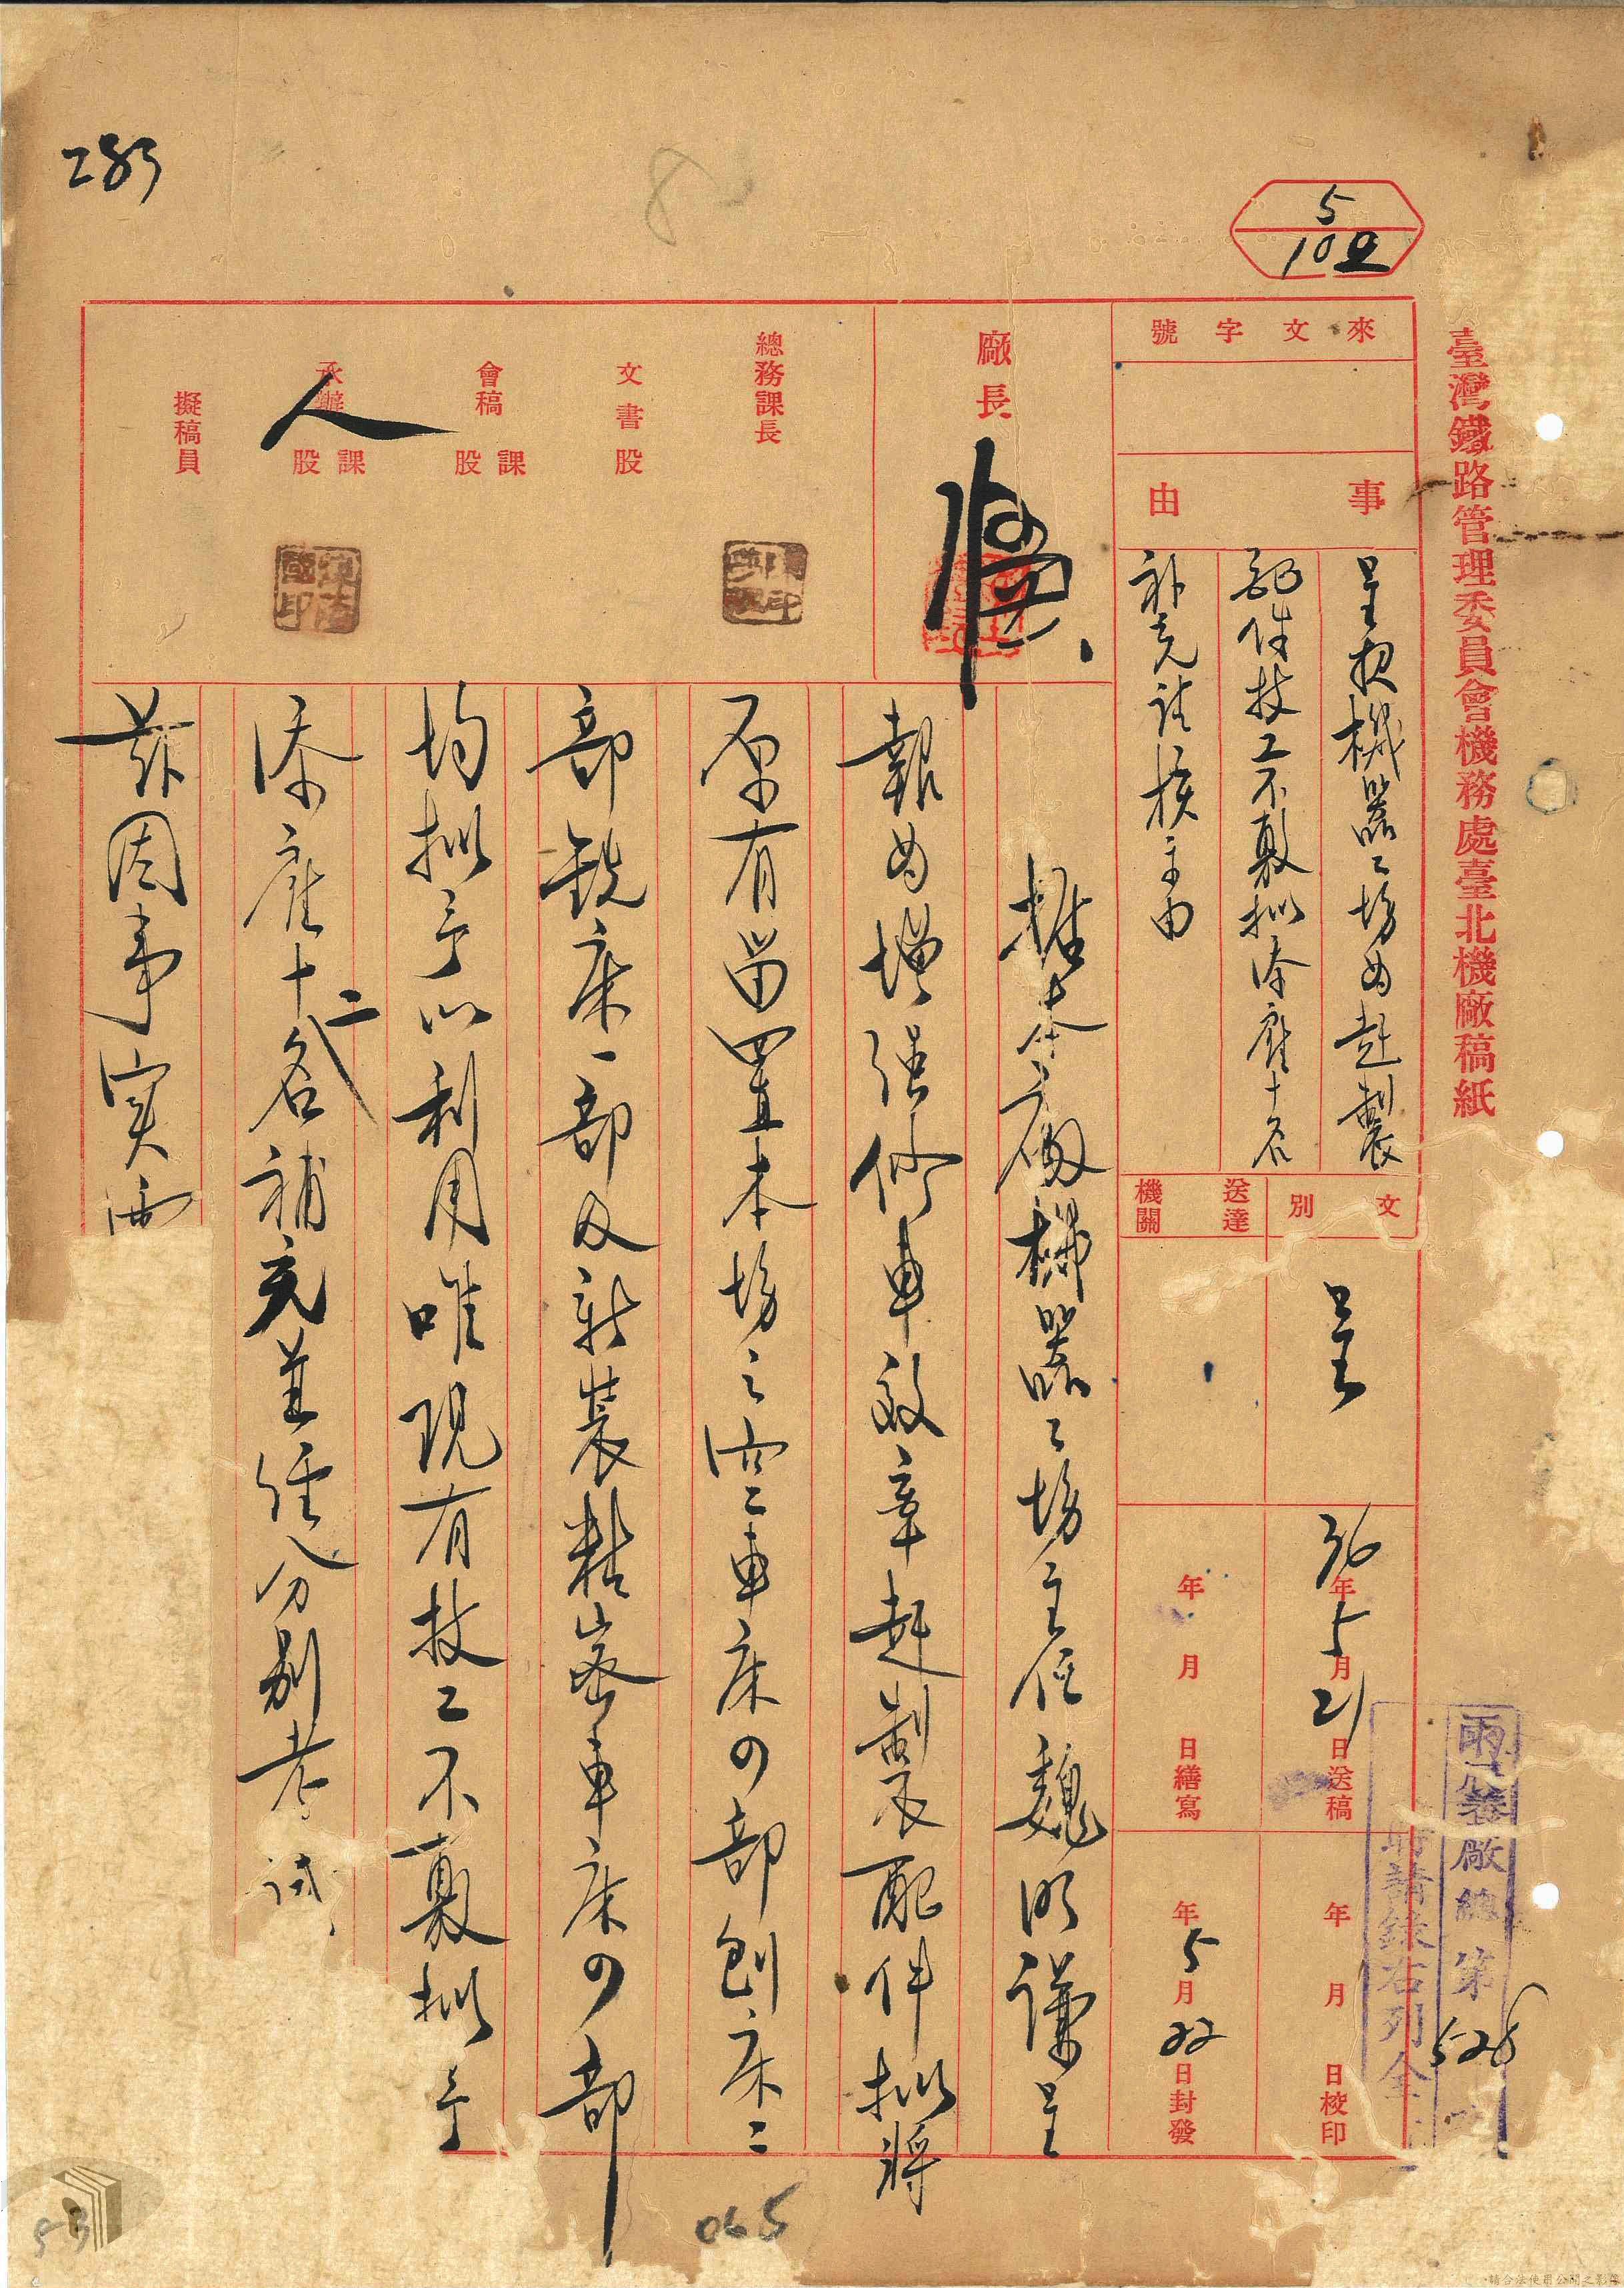 臺灣鐵路管理委員會機務處臺北機廠稿紙
5
100
283
來文字號
事由
呈報機器工場為趕製
配件技工不敷拟添雇十名
補充請核示由
文別
呈
送達機關
36年5月21日送稿
年月日繕寫
年月日校印
年5月22日封發
廠總第528
請錄右列全
廠長
總務課長
文書股
會稿課股
承辦課股
人
擬稿員
據本廠機器工場主任魏 謙呈
報為增强修車效率趕製配件拟將
原有留置本場之 車床四部刨床二
部銑床一部及新装 車床四部
均拟予以利用唯現有技工不敷拟予
添雇十二名補充並經分別考試
茲因事实
065
53